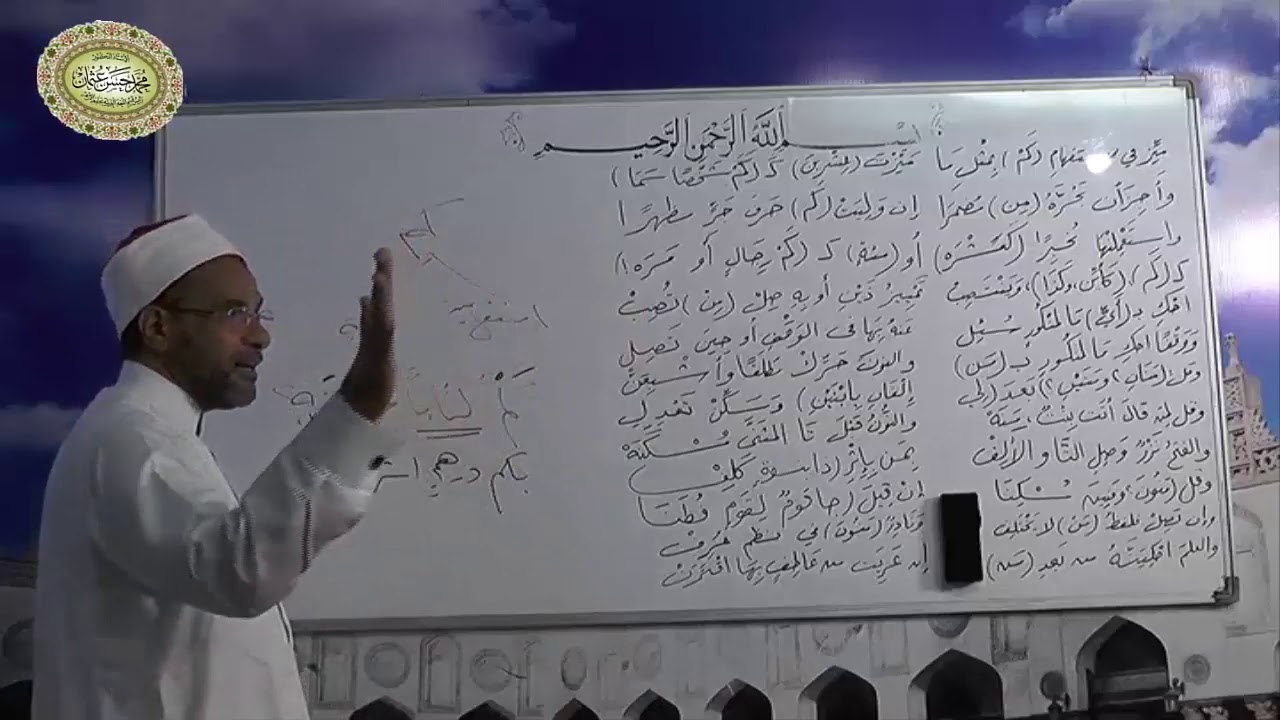 محمد حسن عثمان
بسم اللَّهِ الرَّحْمَنِ الرَّحِيمِ
مَيِّز في الاستفهامِ (كَمْ) بِمِثْلِ مَا مَيَّزْتَ (عِشْرِينَ) كَـ (كَمْ شَخْصًا سَمَا)
وأَجِزْ أن تَجُرَّهُ (مِن) مُضمَرَا إن وَلِيَتْ (كَم) حَرفَ جَرٍّ مظهرا
واستَعْمِلَنْها مُخبِرًا (كَعَشْرَهْ) أو (مئة) كـ (كَمْ رِجَالٍ أو مَرَه)
كـ (كَم)، (كأَيِّن، وكَذَا)، ويَنْتَصِبْ تَمْيِيزُ ذَيْنِ أو بِهِ صِلْ (مِنْ) تُصِبْ
احْكِ بـ (أَيٍّ) مَا لِمَنْكُورٍ سُئِلْ عَنْهُ بِهَا في الوَقْفِ أو حِينَ تَصِلْ
وَوَقْفًا احْكِ مَا لِمَنْكُورٍ بـ (مَن) والنونَ حَرِّكْ مُطْلَقًا وأَشْبِعَنْ
وقُل (مَنَانِ، ومَنَيْنِ) بَعدَ (لي إلْفَانِ بِابْنَيْنِ) وَسَكِّنْ تَعْدِلِ
وقل لِمَن قالَ أتَت بِنْتٌ، مَنَهْ والنُّونُ قَبْلَ تَا المُثَنَّى مُسْكَنَهْ
والفَتْحُ نَزْرٌ وَصِلِ التَّا والأَلِفْ بِمَن بِإِثْرِ (ذا بِنسوةٍ كَلِفْ
وقُل (مَنُونَ، ومَنِينَ مُسْكِنَا إن قِيلَ (جا قَومٌ لِقَومٍ فُطَنَا
وإن تَصِلْ فلفظُ (مَن) لا يَخْتَلِف ونَادِرٌ (مَنُونَ) في نَظْمٍ عُرِفْ
والعلمَ احْكِيَنَّهُ من بَعدِ (مَن) إن عَرِيَت من عَاطِفٍ بِهَا اقْتَرَنْ
كم
استفهامية
بكم درهم